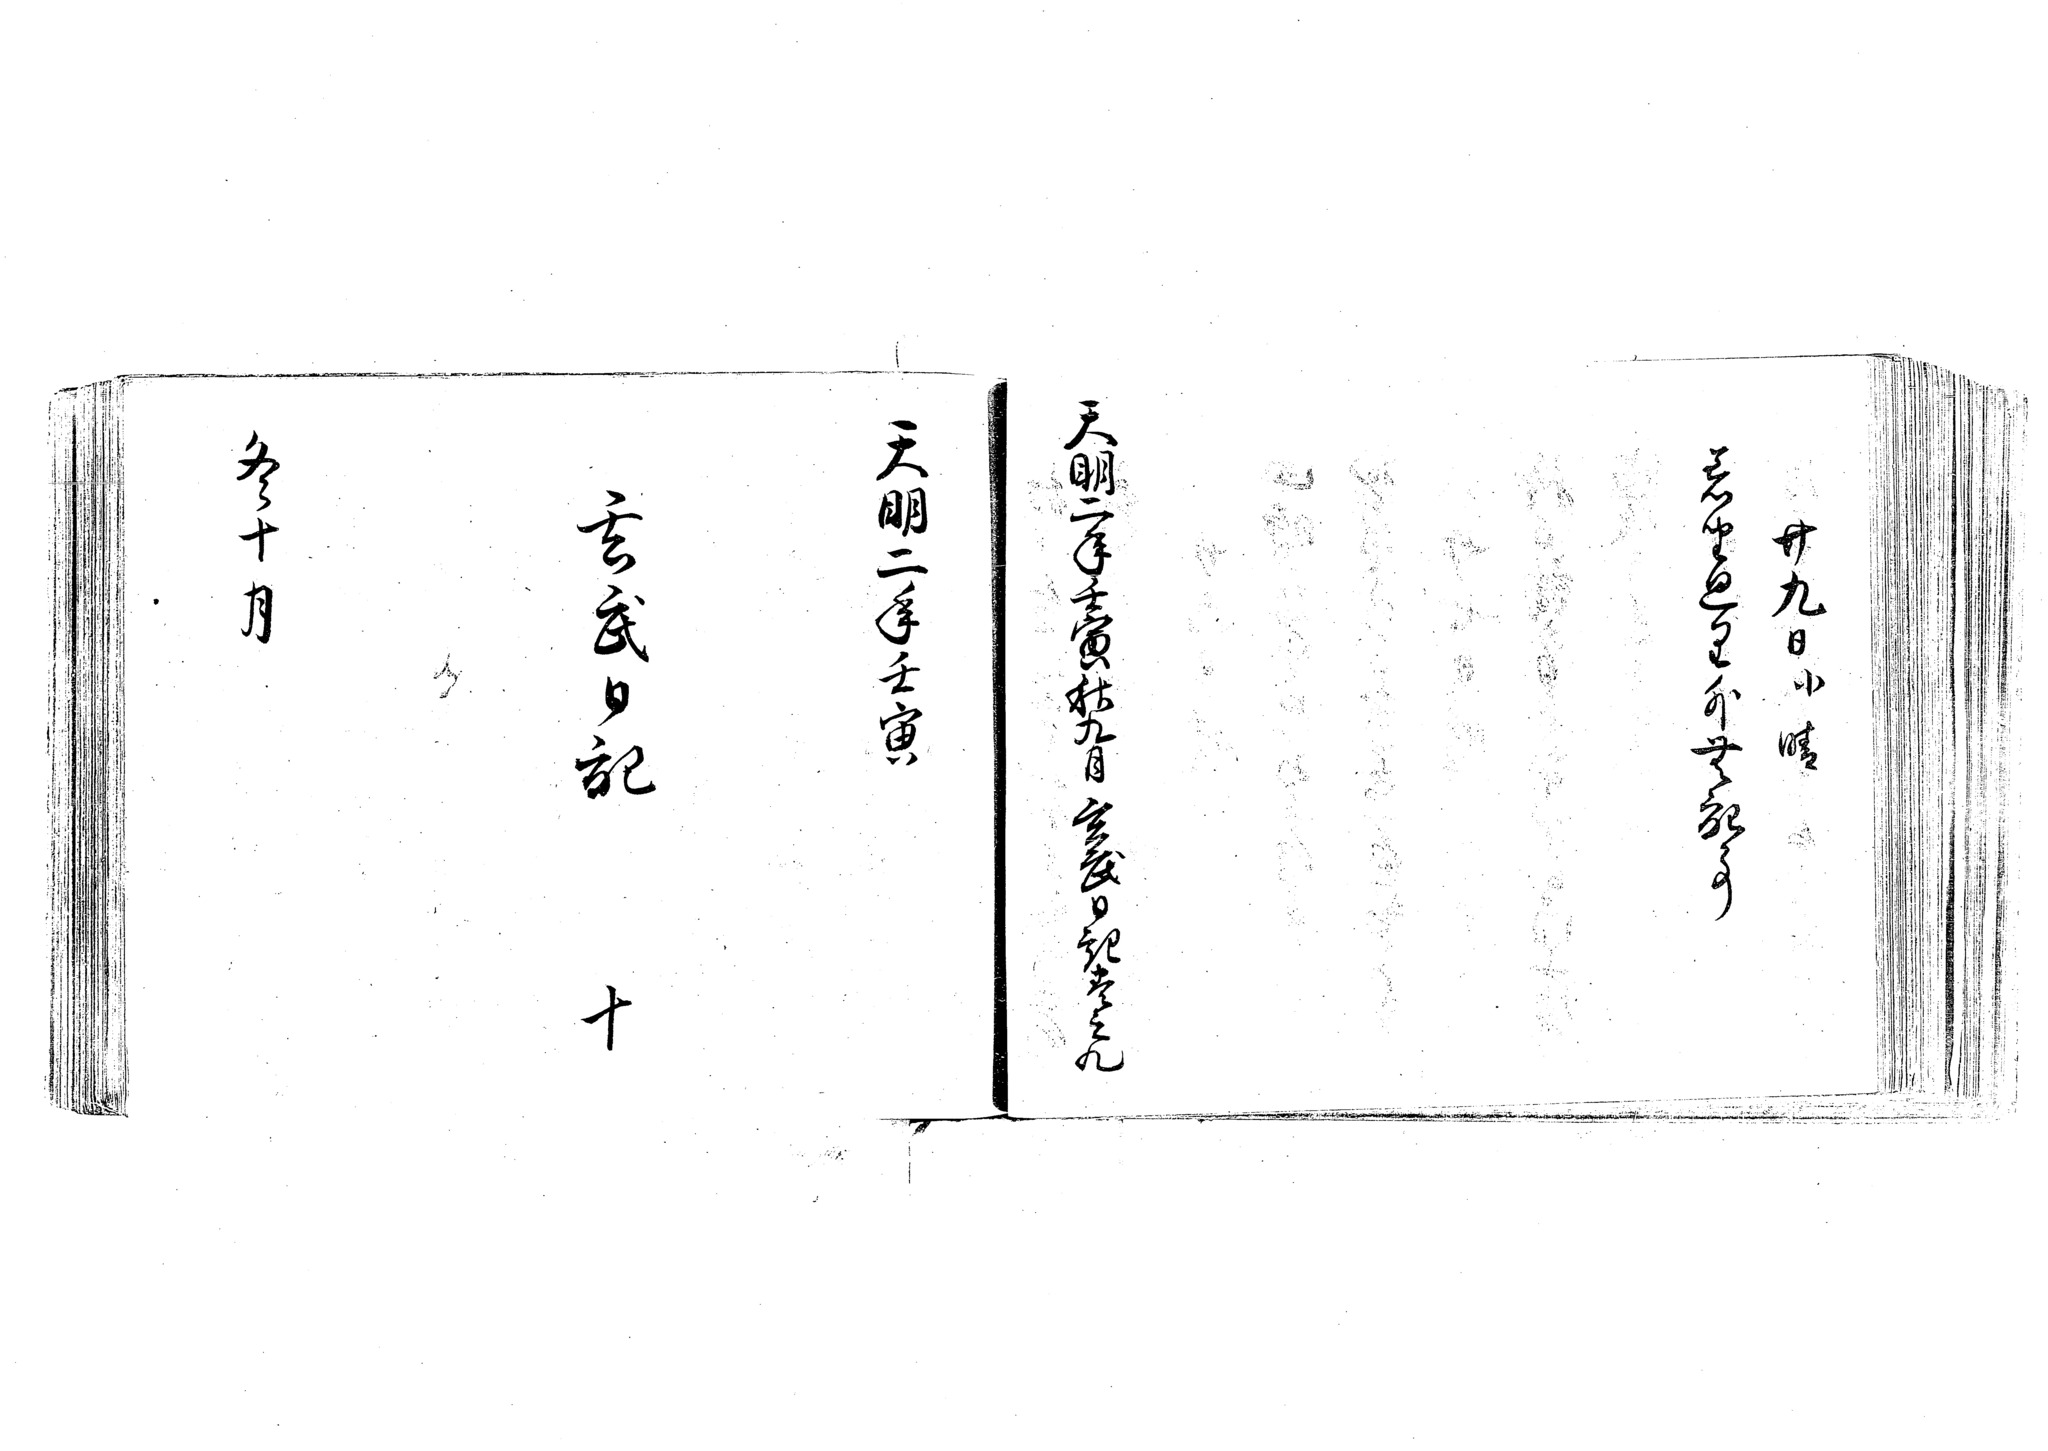 廿九日 小晴
外無記事
天明二年壬寅秋九月 玄武日記巻之九
天明二年壬寅
玄武日記 十
冬十月